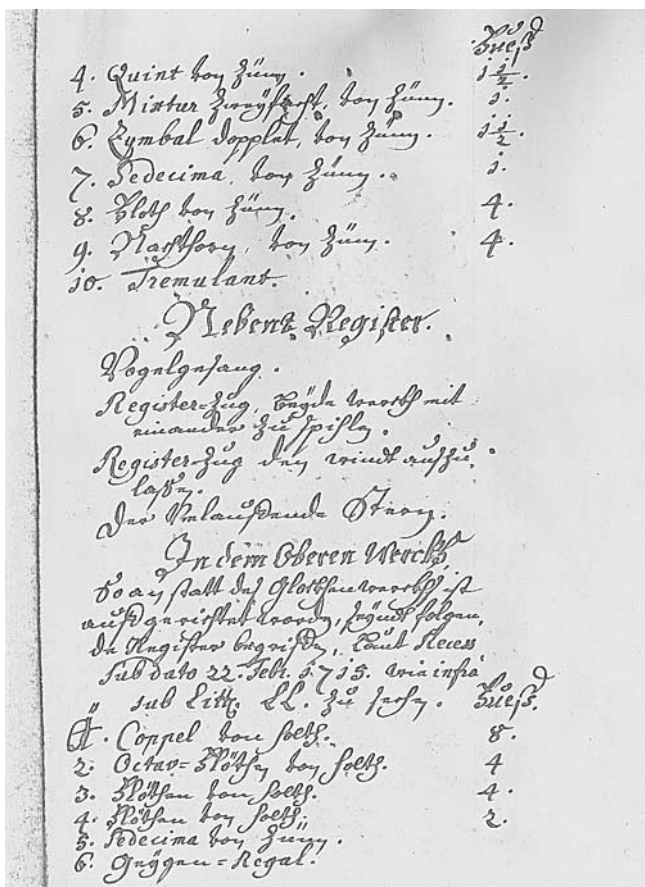 Fueß
4. Quint von Züny. j j/2.
5. Mixtur Zweyfach. von Züny. j.
6. Zymbal dopplet, von Züny. j j/2.
7. Sedecima, von Züny. j.
8. Floth von Züny. 4.
9. Nachthorn, von Züny. 4.
j0. Tremulant.
Nebent Register.
Vogelgesang.
Register-Zug, beyde werckh mit
einander zu spihlen.
Register-Zug den windt ausszu
lassen.
Der Umlauffende Stern.
In dem Oberen Werckh,
So an statt des Glockhenwerckhs ist
auffgerichtet worden, seyndt folgen,
de Register begriffen, laut Recess
sub dato 22. Febr. j7j5. wie infrà
sub Litt. LL. zu sehen. Fueß.
1. Coppel von holtz. 8.
2. Octav-Flöthen von holtz. 4
3. Flöthen von holtz. 4.
4. Flöthen von holtz. 2.
5. Sedecima von Züny.
6. Geygen-Regal.